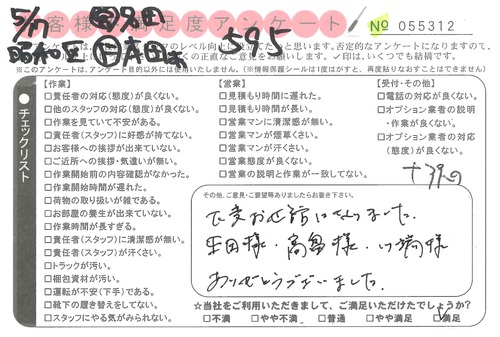 お客様満足度アンケート
№ 055312
5/17
昭和区
595
のレベル向上に
と思います。否定的なアンケートになりますので、
くの正直なご意見をお願いします。✓印は、いくつでも結構です。
※このアンケートは、アンケート目的以外には使用いたしません。(※情報保護シールは1度はがすと、再度貼りなおすことはできません)
チェックリスト
【作業】
□責任者の対応(態度)が良くない。
□他のスタッフの対応(態度)が良くない。
□作業を見ていて不安がある。
□責任者(スタッフ)に好感が持てない。
□お客様への挨拶が出来ていない。
□ご近所への挨拶・気遣いが無い。
□作業開始前の内容確認がなかった。
□作業開始時間が遅れた。
□荷物の取り扱いが雑である。
□お部屋の養生が出来ていない。
□作業時間が長すぎる。
□責任者(スタッフ)に清潔感が無い。
□責任者(スタッフ)が汗くさい。
□トラックが汚い。
□梱包資材が汚い。
□運転が不安(下手)である。
□靴下の履き替えをしてない。
□スタッフにやる気がみられない。
【営業】
□見積もり時間に遅れた。
□見積もり時間が長い。
□営業マンに清潔感が無い。
□営業マンが煙草くさい。
□営業マンが汗くさい。
□営業態度が良くない。
□営業の説明と作業が一致してない。
【受付・その他】
□電話の対応が良くない。
□オプション業者の説明
・作業が良くない。
□オプション業者の対応
(態度)が良くない。
その他、ご意見・ご要望等ありましたらお書き下さい。
大変お世話になりました。
平田様・高畠様・
様
ありがとうございました。
☆当社をご利用いただきまして、ご満足いただけたでしょうか?
□不満 □やや不満 □普通 □やや満足 ☑満足